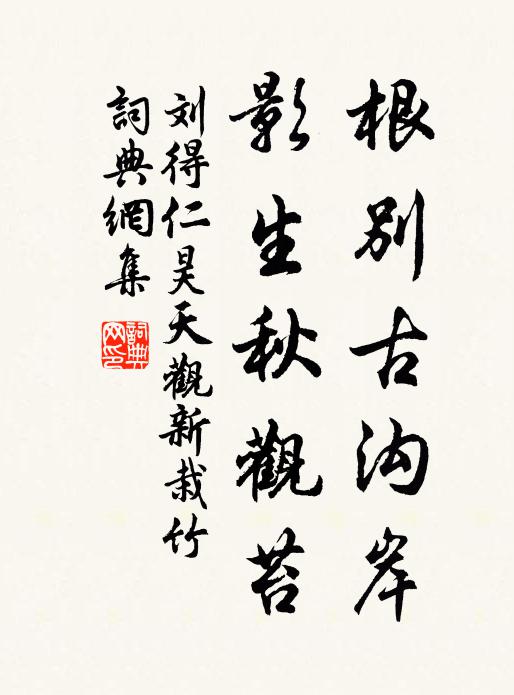 根別古沟岸
影生秋觀苔
刘得仁昊天觀新栽竹
詞典網集
詞典网印